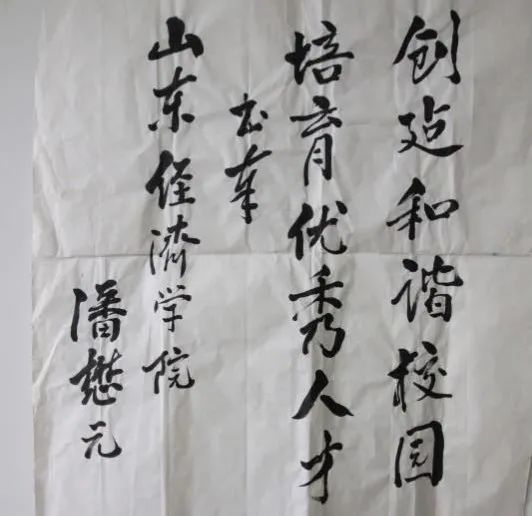 创建和谐校园
培育优秀人才
书奉
山东经济学院
潘懋元